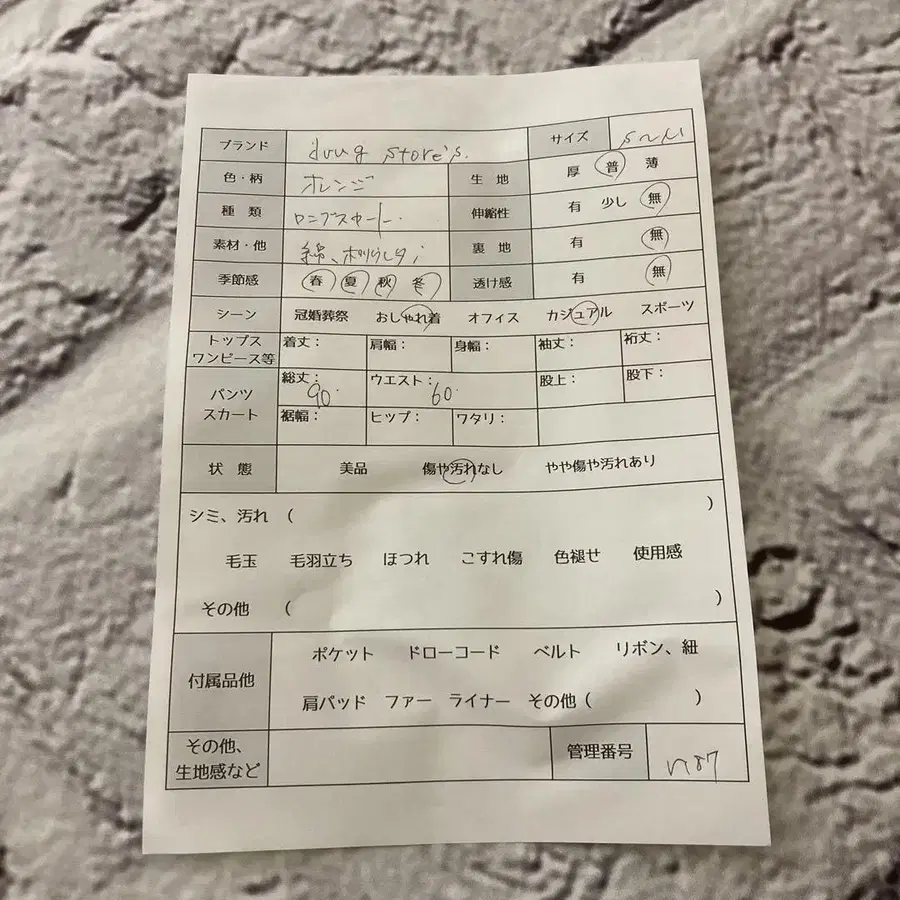 ブランド drug store's. サイズ S~M
色・柄 オレンジ 生地 厚 普 薄
種類 ロングスカート. 伸縮性 有 少し 無
素材・他 綿、ポリウレタン 裏地 有 無
季節感 春 夏 秋 冬 透け感 有 無
シーン 冠婚葬祭 おしゃれ着 オフィス カジュアル スポーツ
トップス ワンピース等 着丈: 肩幅: 身幅: 袖丈: 裄丈:
パンツ スカート 総丈: 90. ウエスト: 60. 股上: 股下:
裾幅: ヒップ: ワタリ:
状態 美品 傷や汚れなし やや傷や汚れあり
シミ、汚れ ( )
毛玉 毛羽立ち ほつれ こすれ傷 色褪せ 使用感
その他 ( )
付属品他 ポケット ドローコード ベルト リボン、紐
肩パッド ファー ライナー その他 ( )
その他、 生地感など 管理番号